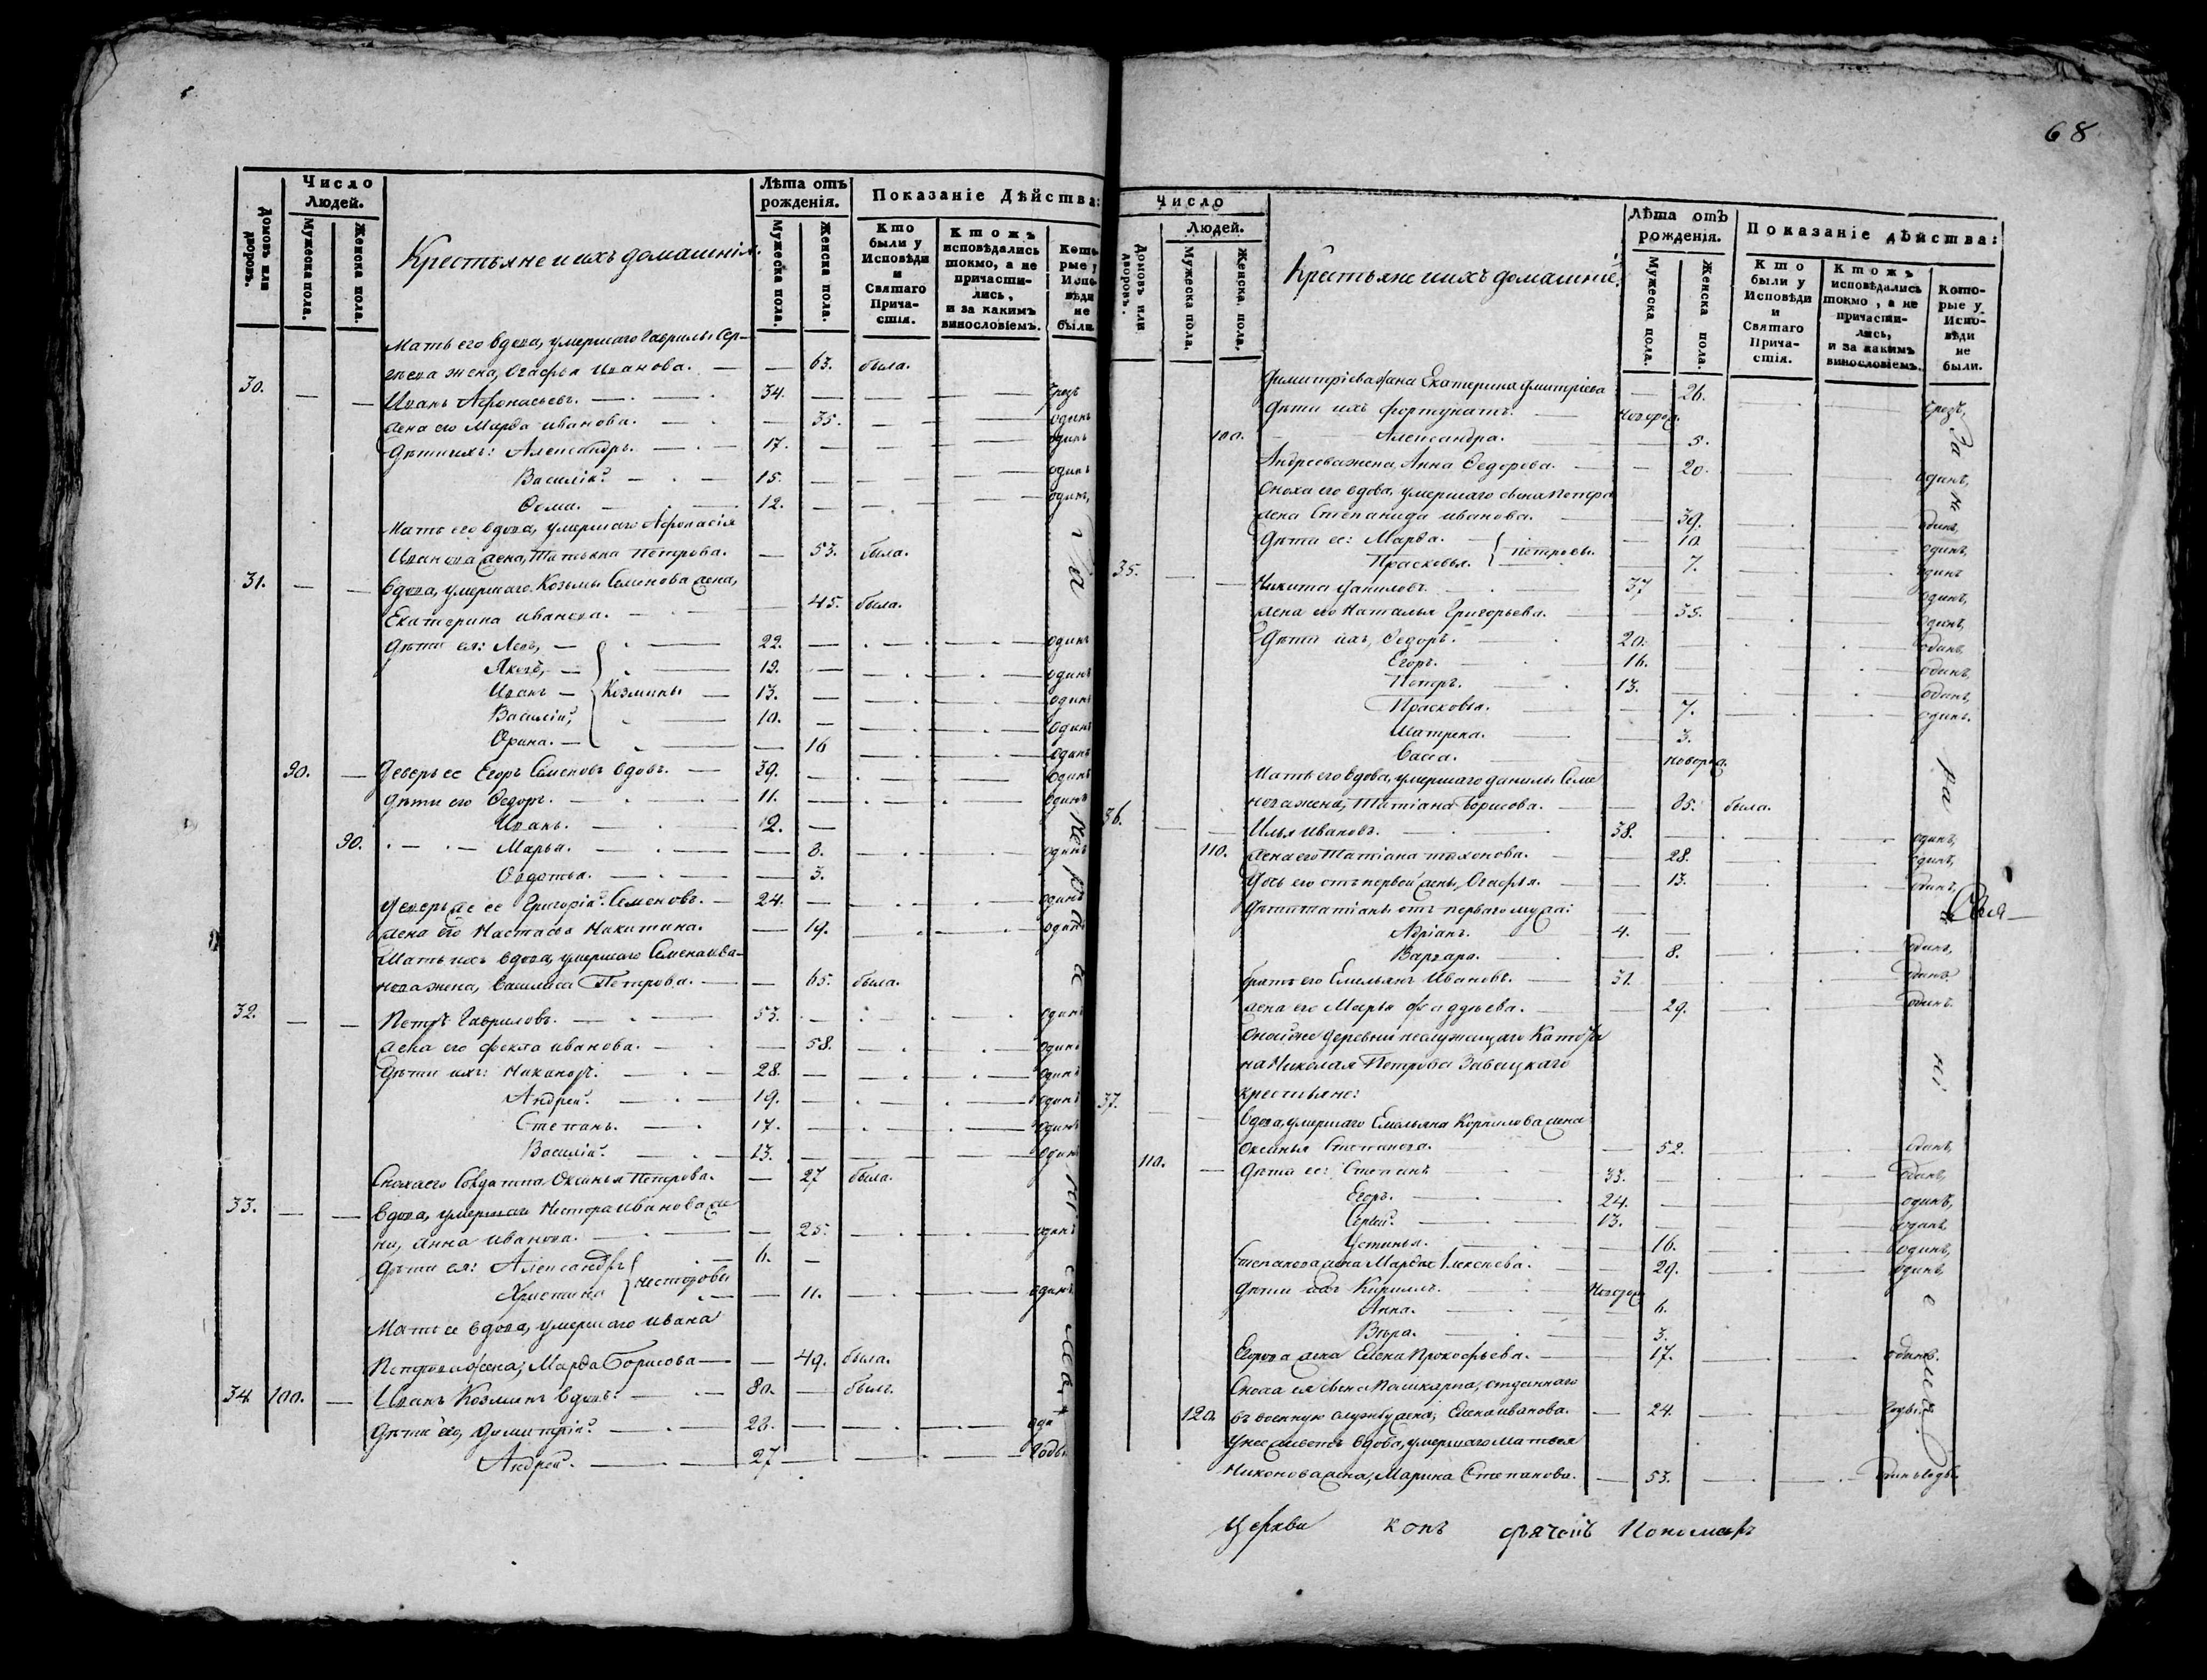 68
Число Людей.
Лѣта отъ рожденія.
Показаніе Дѣйства:
Домовъ или дворовъ.
Мужеска пола.
Женска пола.
Крестьяне и ихъ домашнія.
Мужеска пола.
Женска пола.
Кто были у Исповѣди и Святаго Прича-стія.
Ктожъ исповѣдались токмо, а не причасти-лись, и за какимъ винословіемъ.
Кото-рые у Испо-вѣди не были.
Мать его вдова, умершаго Гаврилы Сер-
гѣева жена, Агафья Иванова. — — 63. была.
30. — — Иванъ Афонасьевъ. — 34.
жена его Марфа Иванова. — 35. одинъ
Дѣти ихъ: Александръ. — 17. одинъ
Василій — 15. одинъ
Фома. — 12. одинъ,
Мать его вдова, умершаго Афонасія
Иванова жена, Татьяна Петрова. — 53. была.
31. — — вдова, умершаго Козмы Семенова жена,
Екатерина Иванова. — 45. была.
Дѣти ея: Левъ, — 22. — одинъ
Яковъ, — 19. — одинъ
Иванъ — Козмины — 13. — одинъ
Василій, 10. — одинъ
Орина. — — 16 одинъ
90. — Деверь ее Егоръ Семеновъ вдовъ. — 39. одинъ
Дѣти его Федоръ. — 11. — одинъ
Иванъ. — 12. —
90. — Марья. — 8. одинъ
Овдотья. — 3.
Деверь же ее Григорій Семеновъ. — 24. — одинъ
жена его Настасья Никитина. — 19. одинъ
Мать ихъ вдова, умершаго Семена Ива-
нова жена, Василиса Петрова. — 65. была.
32. — — Петръ Гавриловъ. — 53. одинъ
жена его Фекла Иванова. — 58. одинъ
Дѣти ихъ: Никаноръ. — 28. — одинъ
Андрей. — 19. — одинъ
Степанъ. — 17. — одинъ
Василій. — 13. — одинъ
Сноха его Солдатка Оксинья Петрова. — 27 была.
33. — — вдова, умершаго Нестора Иванова же
на, Анна Иванова. — 25. одинъ
Дѣти ея: Александръ 6. —
Христина Несторовы — 11. одинъ
Мать ее вдова, умершаго Ивана
Петрова жена, Марфа Борисова — — 49. была.
34. 100. — Иванъ Козминъ вдовъ. — 80. — былъ.
Дѣти его, Димитрій — 28. —
Андрей. — 27 —
Число Людей.
Лѣта отъ рожденія.
Показаніе дѣйства:
Домовъ или дворовъ.
Мужеска пола.
Женска пола.
Крестьяне и ихъ домашніе.
Мужеска пола.
Женска пола.
Кто были у Исповѣди и Святаго Прича-стія.
Ктожъ исповѣдались токмо, а не причасти-лись, и за какимъ винословіемъ.
Кото-рые у Испо-вѣди не были.
Димитріева жена Екатерина Дмитріева — 26.
Дѣти ихъ Фортунатъ. — новорож.
100. Александра. — 5.
Андреева жена, Анна Федорова. — 20. одинъ,
Сноха его вдова, умершаго сына Петра
жена Степанида Иванова. — 39. одинъ,
Дѣти ее: Марфа. — 10. одинъ,
Прасковья. Петровы. — 7. одинъ
35. — — Никита Даниловъ. — 37 одинъ,
жена его Наталья Григорьева. — 35. одинъ,
Дѣти ихъ, Федоръ. — 20. одинъ,
Егоръ. — 16. одинъ,
Петръ. — 13. одинъ,
Прасковья. — 7. одинъ.
Матрена. — 3.
Васса. — новорож.
Мать его вдова, умершаго Данилы Семе
нова жена, Татіана Борисова. — 85. была.
36. — — Илья Ивановъ. — 38. одинъ,
110. жена его Татіана Тихонова. — 28. одинъ,
Дочь его отъ первой жены, Агафья. — 13. одинъ,
Дѣти Татіаны отъ перваго мужа:
Адріанъ. — 4. —
Варвара. — 8. одинъ,
братъ его Емельянъ Ивановъ. — 31. одинъ
жена его Марья Фаддѣева. — 29. одинъ
Оной же деревни
на Николая Петрова Завацкаго
крестьяне:
37. — — вдова, умершаго Емельяна Корнилова жена
Оксинья Степанова. — 52. одинъ,
110. — Дѣти ее: Степанъ — 33. — одинъ,
Егоръ. — 24. — одинъ,
Сергѣй. — 13. — одинъ
Устинья. — 16. одинъ,
Степанова жена Марфа Алексѣева. — 29. одинъ,
Дѣти ихъ Кириллъ. — новорож
Анна. — 6.
Вѣра. — 3.
Егорова жена Елена Прокофьева. — 17. одинъ.
Сноха ея сына отданнаго
120. въ военную службу жена, Елена Иванова. — 24.
У нее живетъ вдова, умершаго Матвея
Никонова жена, Марина Степанова. — 53.
Церкви Пономарь